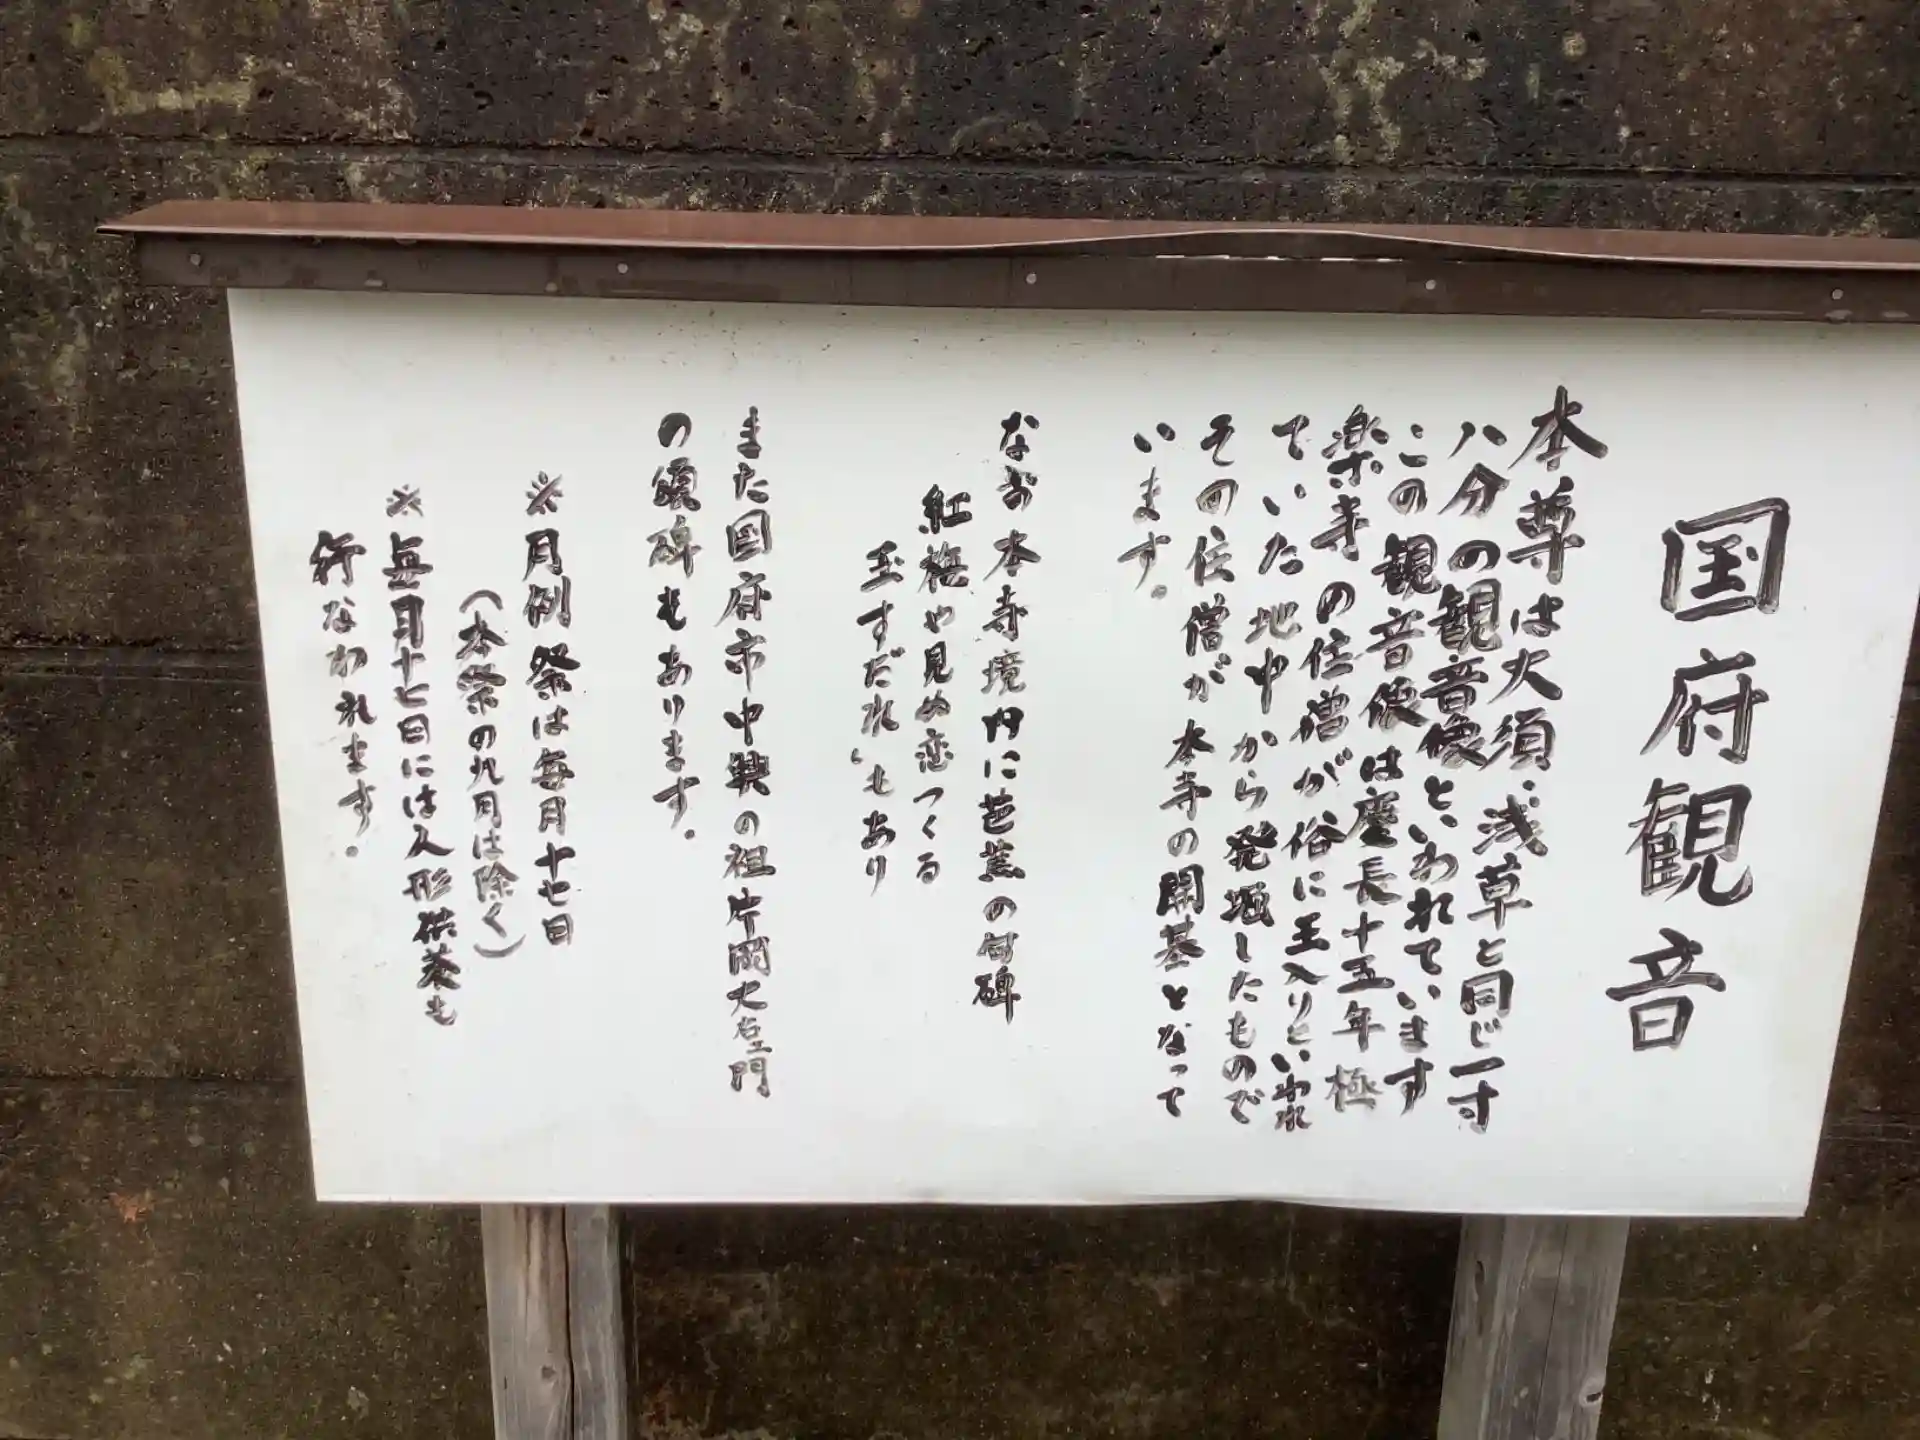 国府観音
本尊は大須、浅草と同じ一寸
八分の観音像といわれています
この観音像は慶長十五年極
楽寺の住僧が俗に王入りといわれ
ていた地中から発掘したもので
その住僧が本寺の開基となって
います。
なお本寺境内に芭蕉の句碑
紅梅や見ぬ恋つくる
玉すだれ もあり
また国府市中興の祖片岡大左ヱ門
の頌碑もあります。
※月例祭は毎月十七日
（本祭の九月は除く）
※毎月十七日には人形供養も
行なわれます。